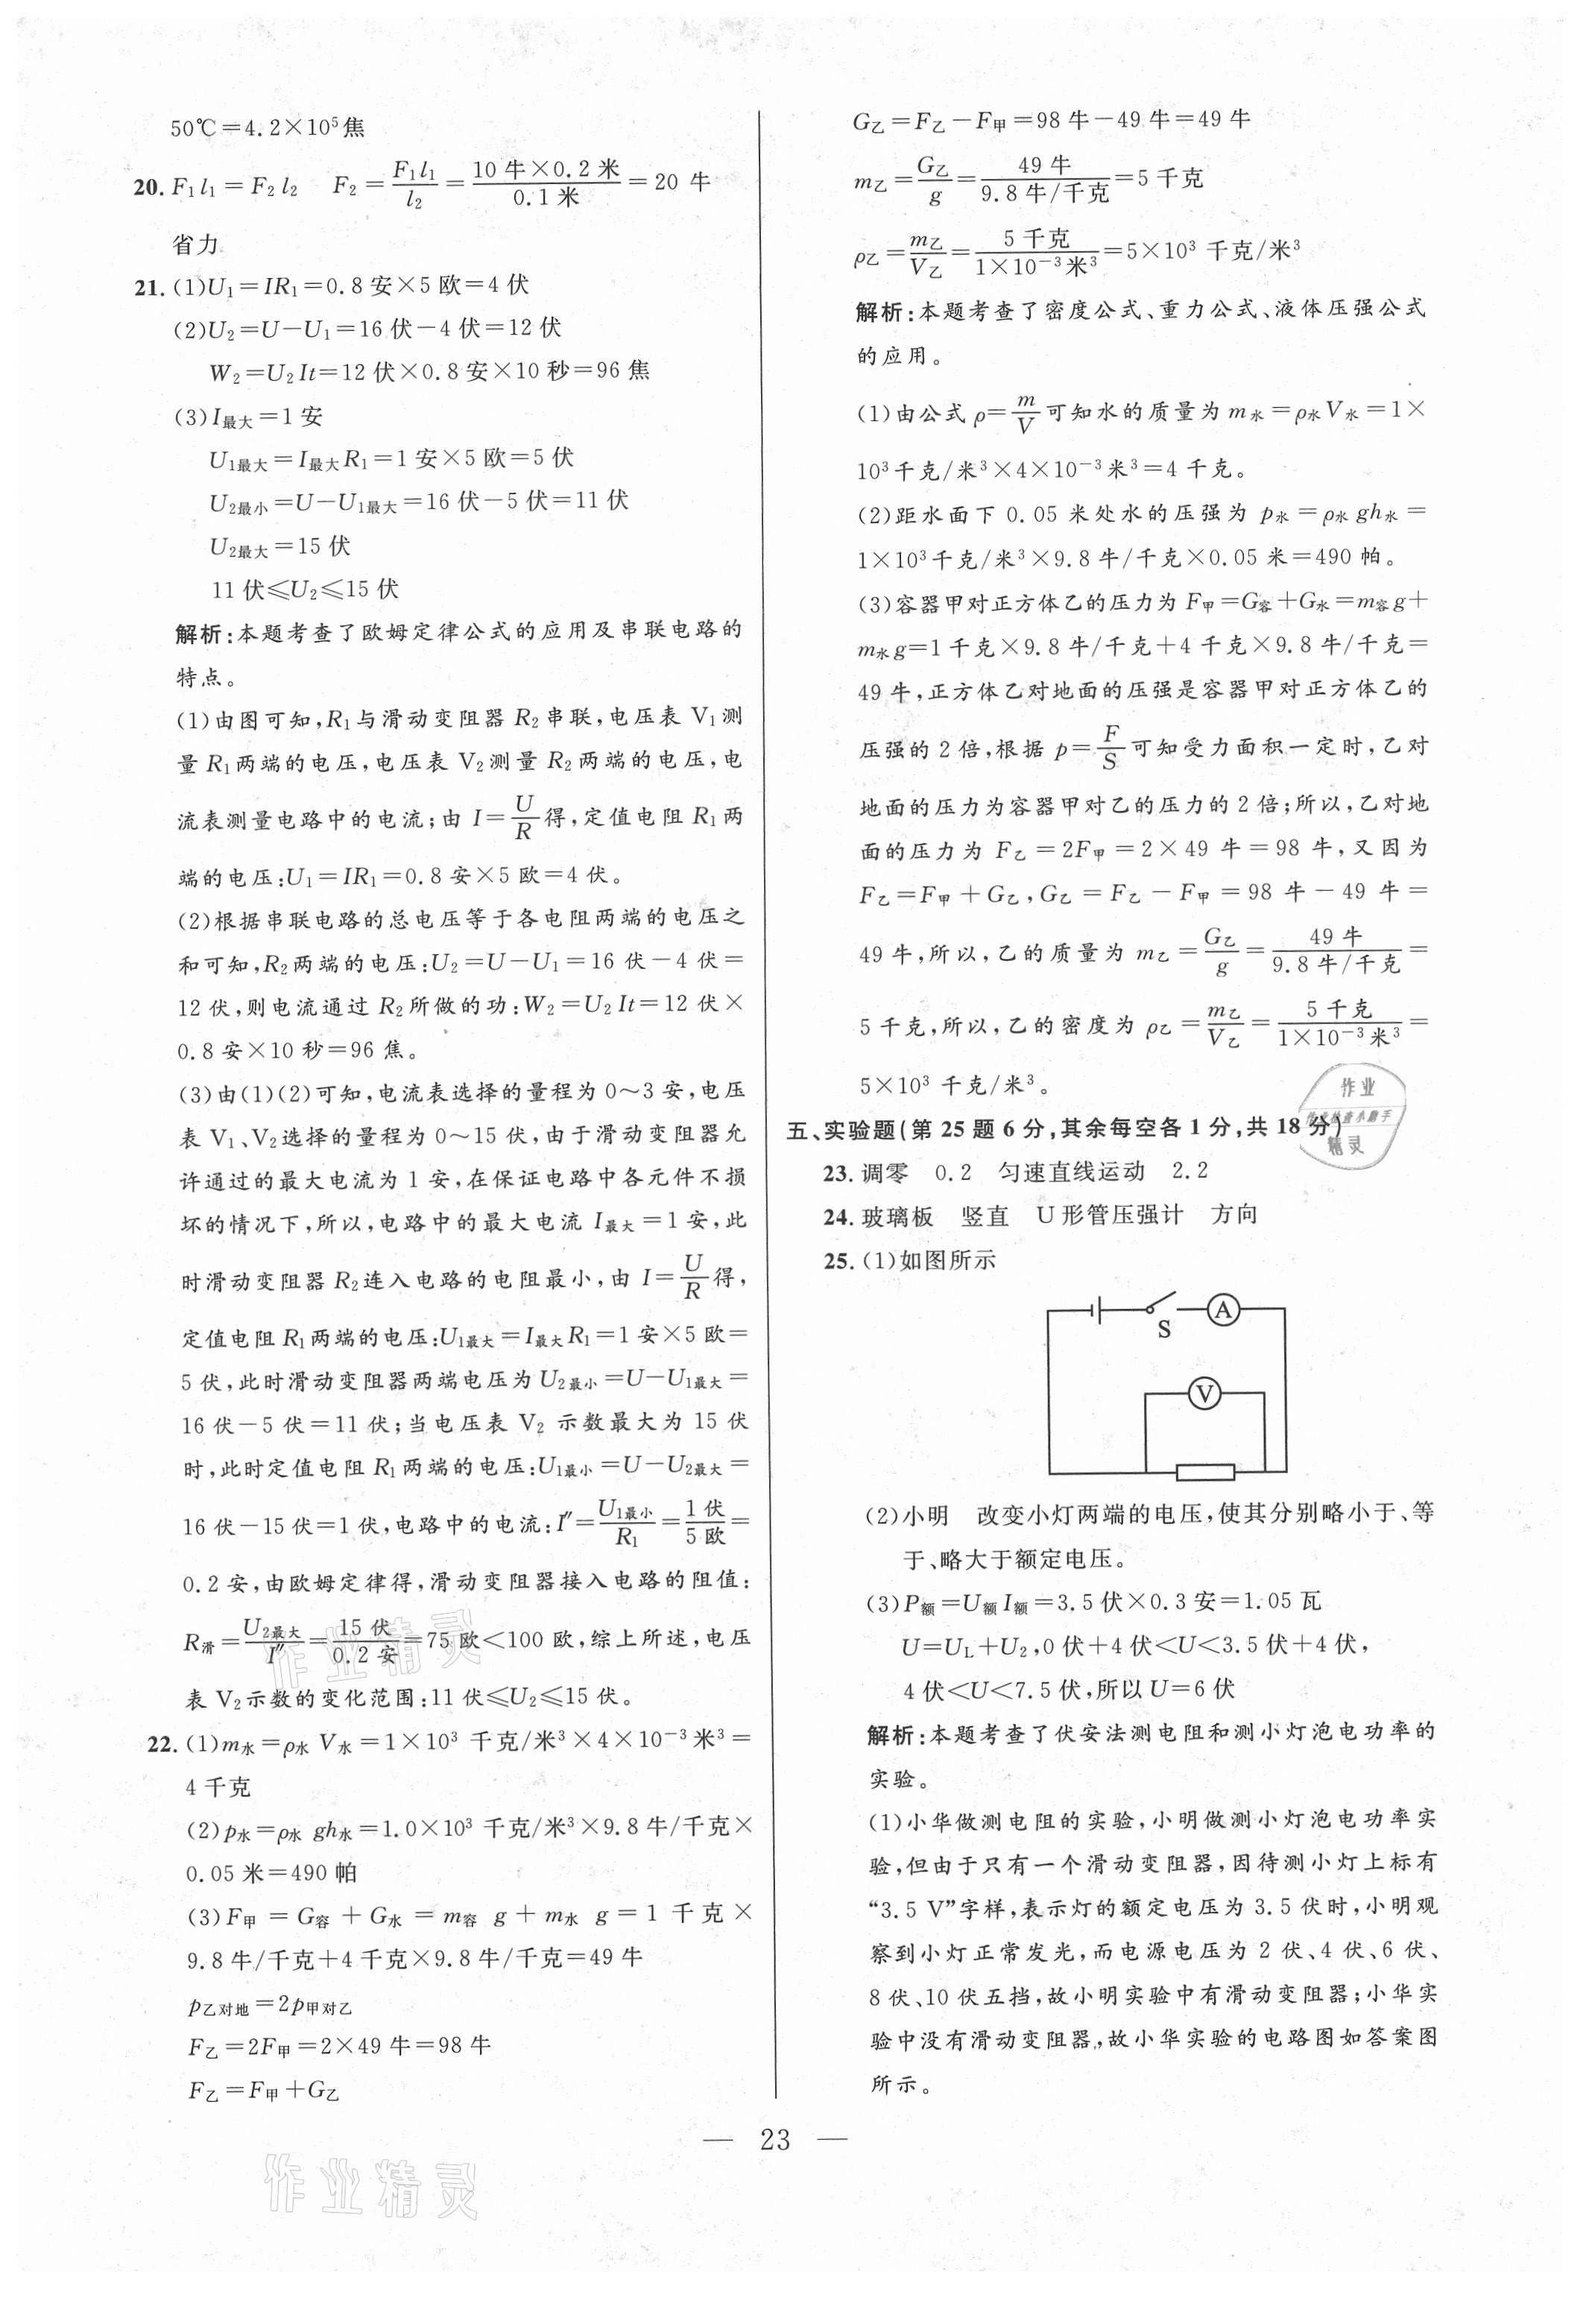 50℃=4.2×10⁵焦
20. F₁l₁=F₂l₂ F₂=F₁l₁/l₂=10牛×0.2米/0.1米=20牛
省力
21. (1)U₁=IR₁=0.8安×5欧=4伏
(2)U₂=U-U₁=16伏-4伏=12伏
W₂=U₂It=12伏×0.8安×10秒=96焦
(3)I最大=1安
U₁最大=I最大R₁=1安×5欧=5伏
U₂最小=U-U₁最大=16伏-5伏=11伏
U₂最大=15伏
11伏≤U₂≤15伏
解析:本题考查了欧姆定律公式的应用及串联电路的
特点。
(1)由图可知,R₁与滑动变阻器R₂串联,电压表V₁测
量R₁两端的电压,电压表V₂测量R₂两端的电压,电
流表测量电路中的电流;由I=U/R得,定值电阻R₁两
端的电压:U₁=IR₁=0.8安×5欧=4伏。
(2)根据串联电路的总电压等于各电阻两端的电压之
和可知,R₂两端的电压:U₂=U-U₁=16伏-4伏=
12伏,则电流通过R₂所做的功:W₂=U₂It=12伏×
0.8安×10秒=96焦。
(3)由(1)(2)可知,电流表选择的量程为0~3安,电压
表V₁、V₂选择的量程为0~15伏,由于滑动变阻器允
许通过的最大电流为1安,在保证电路中各元件不损
坏的情况下,所以,电路中的最大电流I最大=1安,此
时滑动变阻器R₂连入电路的电阻最小,由I=U/R得,
定值电阻R₁两端的电压:U₁最大=I最大R₁=1安×5欧=
5伏,此时滑动变阻器两端电压为U₂最小=U-U₁最大=
16伏-5伏=11伏;当电压表V₂示数最大为15伏
时,此时定值电阻R₁两端的电压:U₁最小=U-U₂最大=
16伏-15伏=1伏,电路中的电流:I″=U₁最小/R₁=1伏/5欧=
0.2安,由欧姆定律得,滑动变阻器接入电路的阻值:
R滑=U₂最大/I″=15伏/0.2安=75欧<100欧,综上所述,电压
表V₂示数的变化范围:11伏≤U₂≤15伏。
22. (1)m水=ρ水V水=1×10³千克/米³×4×10⁻³米³=
4千克
(2)p水=ρ水gh水=1.0×10³千克/米³×9.8牛/千克×
0.05米=490帕
(3)F甲=G容+G水=m容g+m水g=1千克×
9.8牛/千克+4千克×9.8牛/千克=49牛
p乙对地=2p甲对乙
F乙=2F甲=2×49牛=98牛
F乙=F甲+G乙
G乙=F乙-F甲=98牛-49牛=49牛
m乙=G乙/g=49牛/9.8牛/千克=5千克
ρ乙=m乙/V乙=5千克/1×10⁻³米³=5×10³千克/米³
解析:本题考查了密度公式、重力公式、液体压强公式
的应用。
(1)由公式ρ=m/V可知水的质量为m水=ρ水V水=1×
10³千克/米³×4×10⁻³米³=4千克。
(2)距水面下0.05米处水的压强为p水=ρ水gh水=
1×10³千克/米³×9.8牛/千克×0.05米=490帕。
(3)容器甲对正方体乙的压力为F甲=G容+G水=m容g+
m水g=1千克×9.8牛/千克+4千克×9.8牛/千克=
49牛,正方体乙对地面的压强是容器甲对正方体乙的
压强的2倍,根据p=F/S可知受力面积一定时,乙对
地面的压力为容器甲对乙的压力的2倍;所以,乙对地
面的压力为F乙=2F甲=2×49牛=98牛,又因为
F乙=F甲+G乙,G乙=F乙-F甲=98牛-49牛=
49牛,所以,乙的质量为m乙=G乙/g=49牛/9.8牛/千克=
5千克,所以,乙的密度为ρ乙=m乙/V乙=5千克/1×10⁻³米³=
5×10³千克/米³。
五、实验题(第25题6分,其余每空各1分,共18分)
23. 调零 0.2 匀速直线运动 2.2
24. 玻璃板 竖直 U形管压强计 方向
25. (1)如图所示
S
A
V
(2)小明 改变小灯两端的电压,使其分别略小于、等
于、略大于额定电压。
(3)P额=U额I额=3.5伏×0.3安=1.05瓦
U=UL+U₂,0伏+4伏<U<3.5伏+4伏,
4伏<U<7.5伏,所以U=6伏
解析:本题考查了伏安法测电阻和测小灯泡电功率的
实验。
(1)小华做测电阻的实验,小明做测小灯泡电功率实
验,但由于只有一个滑动变阻器,因待测小灯上标有
“3.5 V”字样,表示灯的额定电压为3.5伏时,小明观
察到小灯正常发光,而电源电压为2伏、4伏、6伏、
8伏、10伏五挡,故小明实验中有滑动变阻器;小华实
验中没有滑动变阻器,故小华实验的电路图如答案图
所示。
— 23 —
作业
精灵
作业精灵
作业精灵